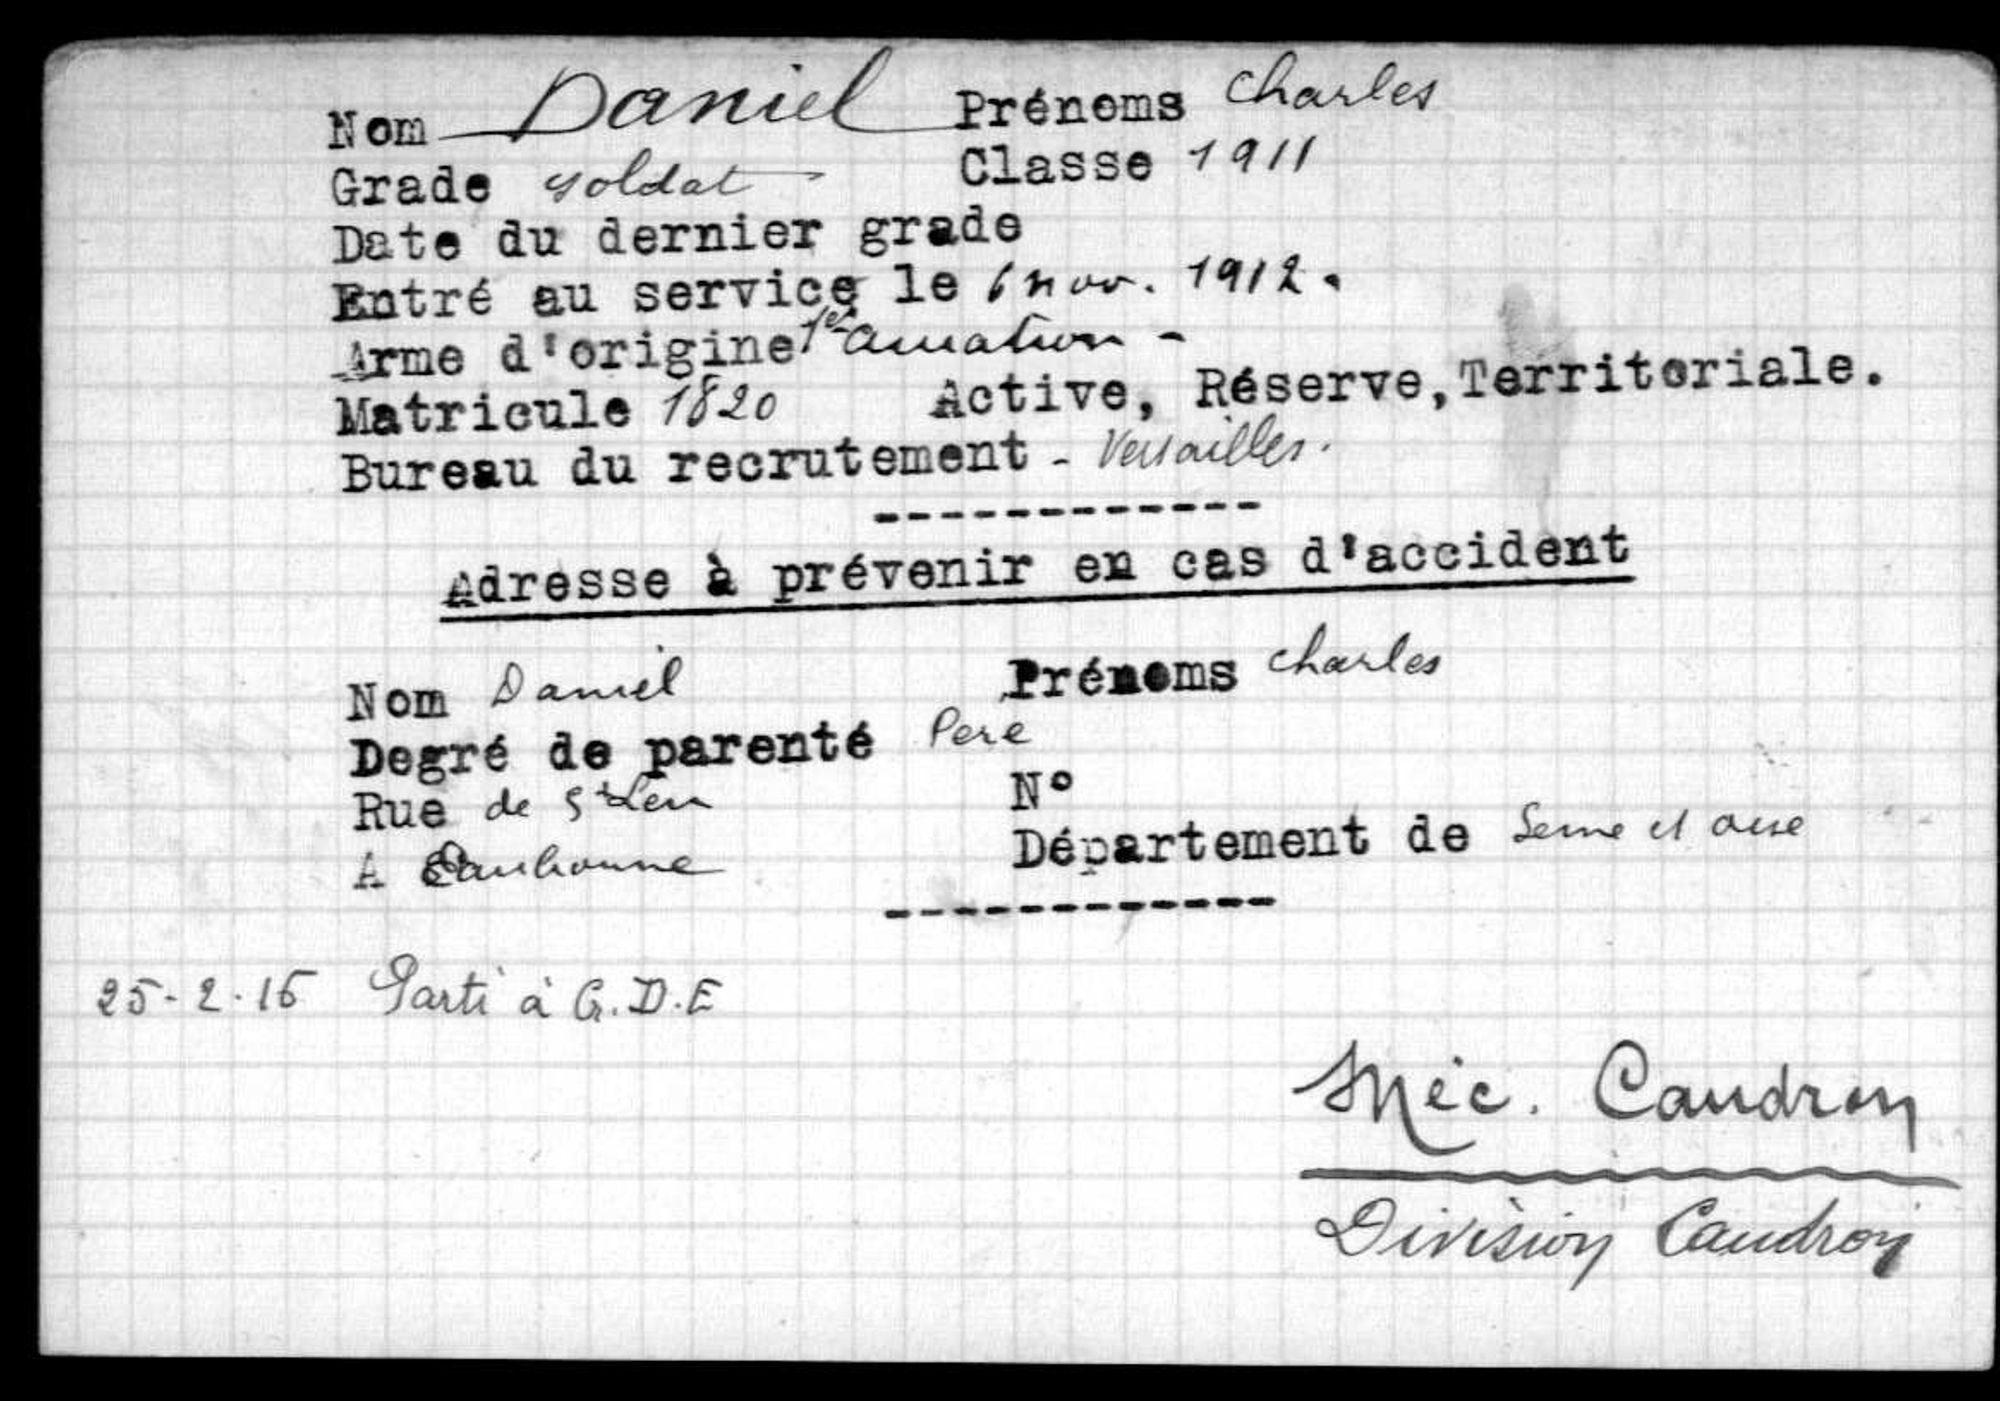 Nom Daniel Prénoms Charles
Grade soldat Classe 1911
Date du dernier grade
Entré au service le 6 nov. 1912.
Arme d'origine 1er aviation -
Matricule 1820 Active, Réserve, Territoriale.
Bureau du recrutement - Versailles.
------------
Adresse à prévenir en cas d'accident
Nom Daniel Prénoms Charles
Degré de parenté Pere
Rue de St Leu N°
A Eaubonne Département de Seine et oise
------------
25-2-16 Parti à G.D.E
Méc. Caudron
Division Caudron